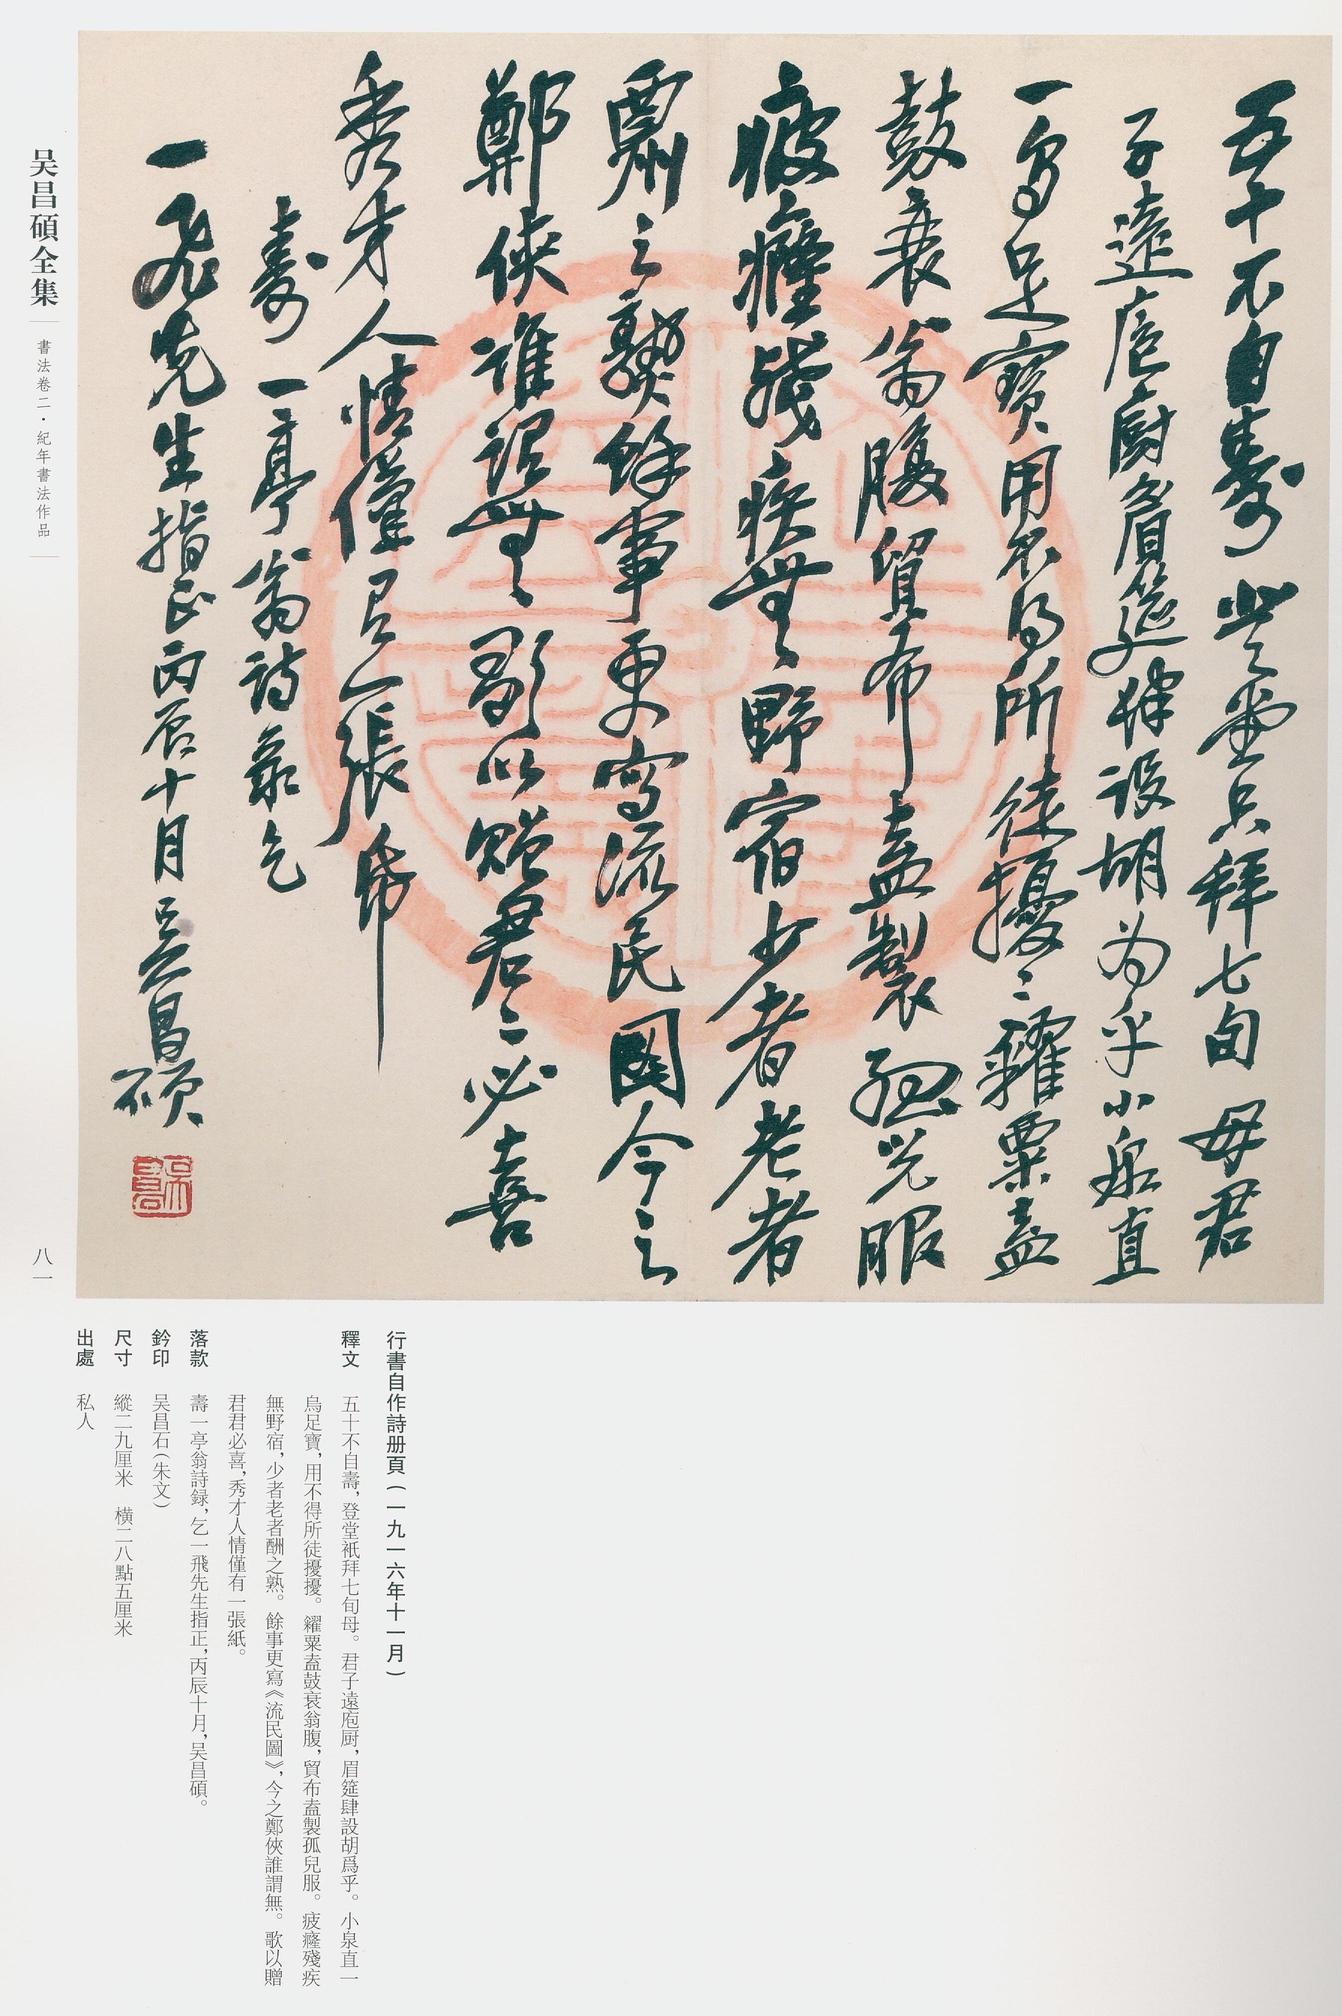 五十不自壽登堂只拜七旬母君
子遠庖厨眉筵肆設胡为乎小泉直
一烏足寶用不得所徒擾々糴粟盍
鼓衰翁腹貿布盍製孤兒服
疲癃殘疾無野宿少者老者
酬之熟餘事更寫流民圖今之
鄭俠誰謂無歌以贈君々必喜
秀才人情僅有一張帋
壽一亭翁詩录乞
一飛先生指正丙辰十月吴昌碩
吴昌石
吴昌碩全集
書法卷二·紀年書法作品
八一
行書自作詩册頁（一九一六年十一月）
釋文 五十不自壽，登堂祇拜七旬母。君子遠庖厨，眉筵肆設胡爲乎。小泉直一
烏足寶，用不得所徒擾擾。糴粟盍鼓衰翁腹，貿布盍製孤兒服。疲癃殘疾
無野宿，少者老者酬之熟。餘事更寫《流民圖》，今之鄭俠誰謂無。歌以贈
君君必喜，秀才人情僅有一張紙。
落款 壽一亭翁詩録，乞一飛先生指正，丙辰十月，吴昌碩。
鈐印 吴昌石（朱文）
尺寸 縱二九厘米 横二八點五厘米
出處 私人